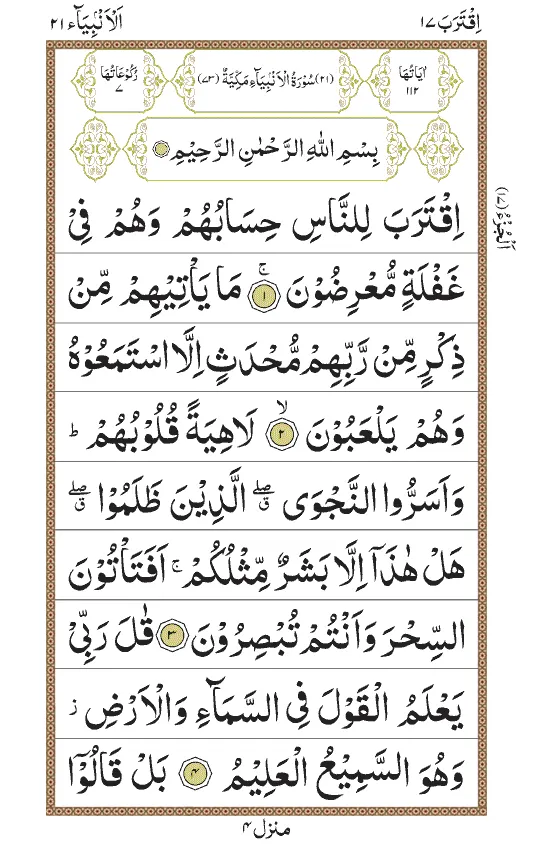 اِقْتَرَبَ ١٧
اَلْاَنْۢبِيَآء ٢١
اٰيَاتُهَا ١١٢
(٢١) سُوْرَةُ الْاَنْۢبِيَآءِ مَكِّيَّةٌ (٧٣)
رُكُوْعَاتُهَا ٧
بِسْمِ اللهِ الرَّحْمٰنِ الرَّحِيْمِ
اِقْتَرَبَ لِلنَّاسِ حِسَابُهُمْ وَهُمْ فِيْ
غَفْلَةٍ مُّعْرِضُوْنَ ۚ ١ مَا يَاْتِيْهِمْ مِّنْ
ذِكْرٍ مِّنْ رَّبِّهِمْ مُّحْدَثٍ اِلَّا اسْتَمَعُوْهُ
وَهُمْ يَلْعَبُوْنَ ۙ ٢ لَاهِيَةً قُلُوْبُهُمْ ؕ
وَاَسَرُّوا النَّجْوَى ۖق الَّذِيْنَ ظَلَمُوْا ۖق
هَلْ هٰذَآ اِلَّا بَشَرٌ مِّثْلُكُمْ ۚ اَفَتَاْتُوْنَ
السِّحْرَ وَاَنْتُمْ تُبْصِرُوْنَ ٣ قٰلَ رَبِّيْ
يَعْلَمُ الْقَوْلَ فِي السَّمَآءِ وَالْاَرْضِ ز
وَهُوَ السَّمِيْعُ الْعَلِيْمُ ٤ بَلْ قَالُوْٓا
اَلْجُزْءُ (١٧)
منزل ٤